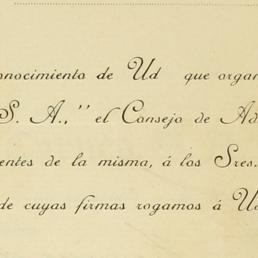 onocimiento de Ud que organ
S. A.," el Consejo de Ad
entes de la misma, á los Sres.
de cuyas firmas rogamos á Ud